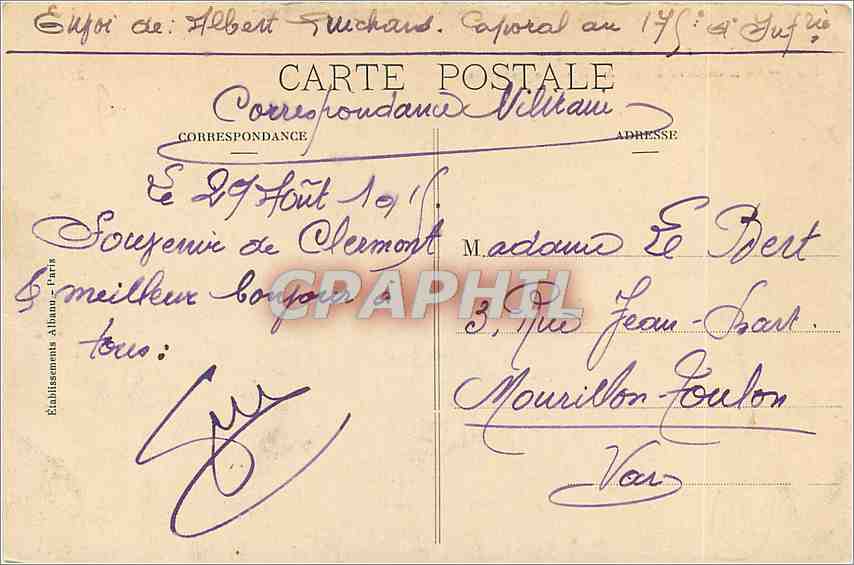 Envoi de: Albert Guichard. Caporal au 175e d'Infrie
CARTE POSTALE
Correspondance Militaire
CORRESPONDANCE
ADRESSE
Le 29 Août 1915.
Souvenir de Clermont
& meilleur bonjour à
tous:
Madame Le Bert
3, Rue Jean-Bart.
Mourillon-Toulon
Var
Établissements Albanu - Paris
CPAPHIL